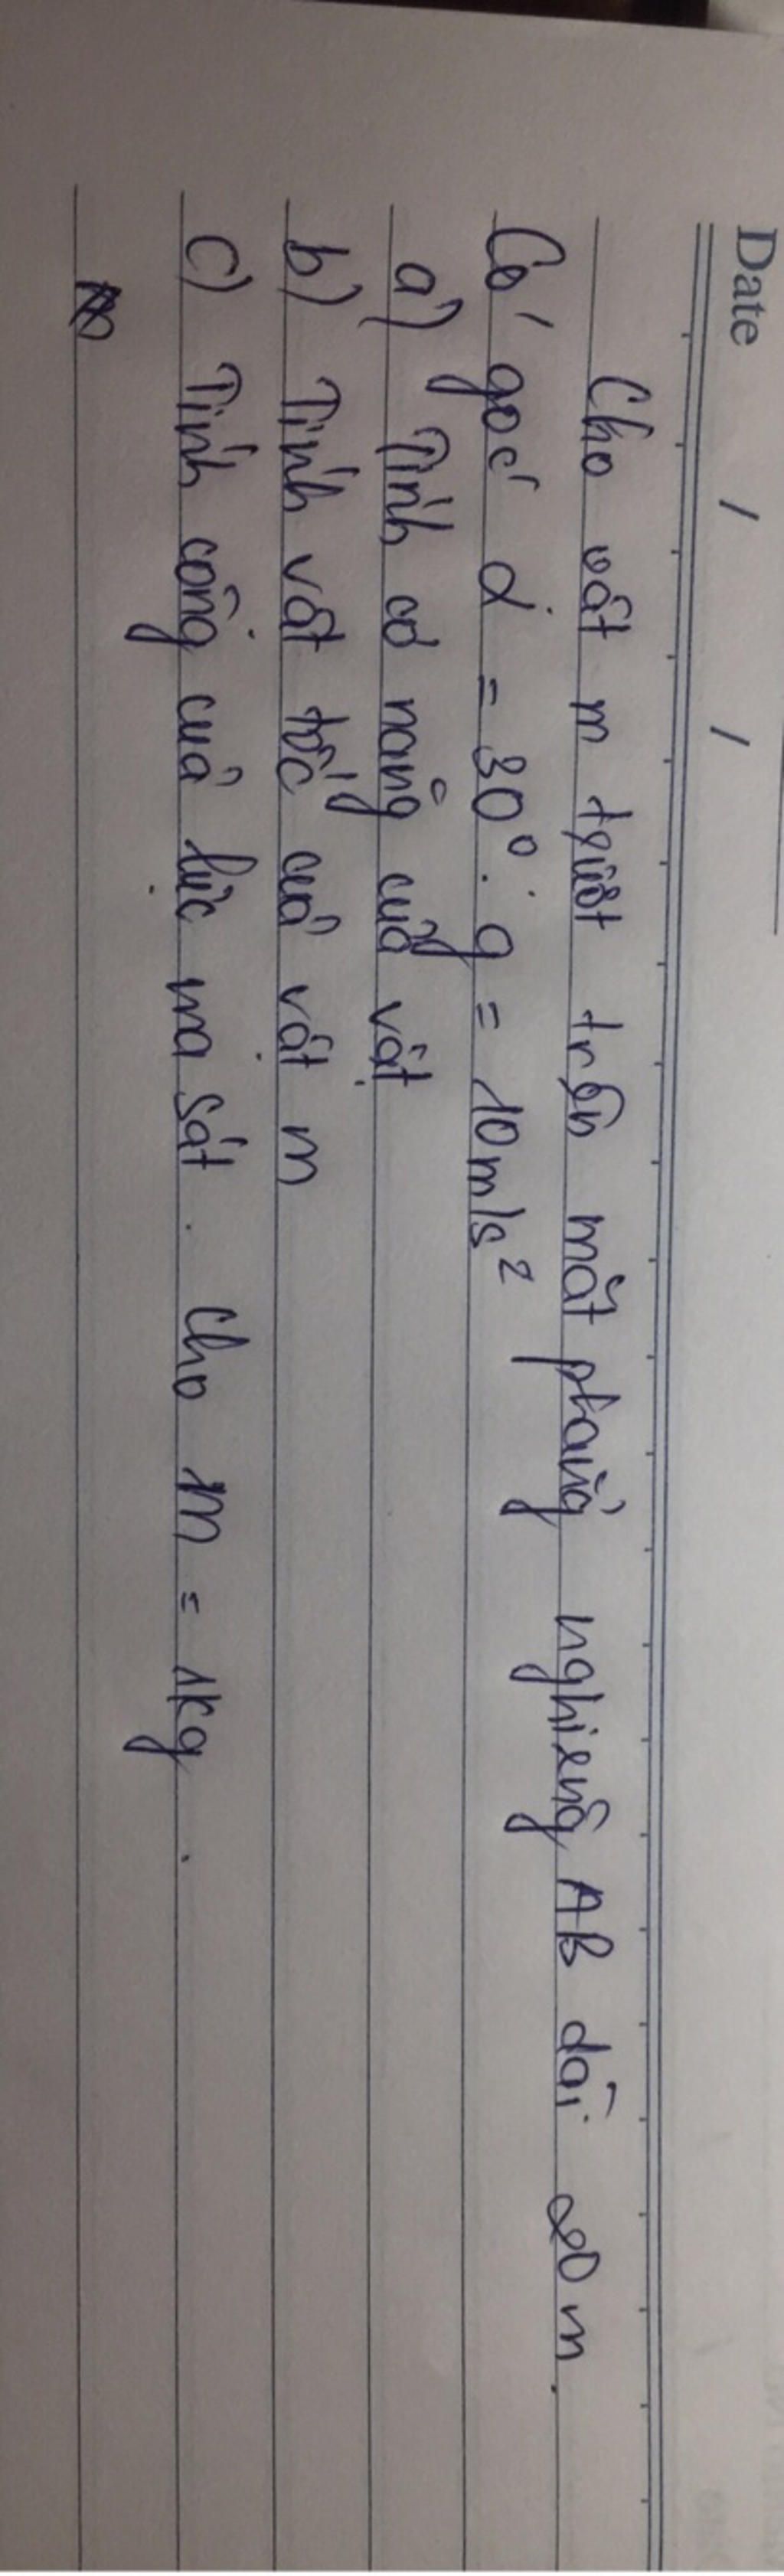 Date / /
Cho vật m trượt trên mặt phẳng nghiêng AB dài 20 m.
Có góc α = 30°. g = 10m/s²
a) Tính cơ năng của vật
b) Tính vật tốc của vật m
c) Tính công của lực ma sát. Cho m = 1kg.